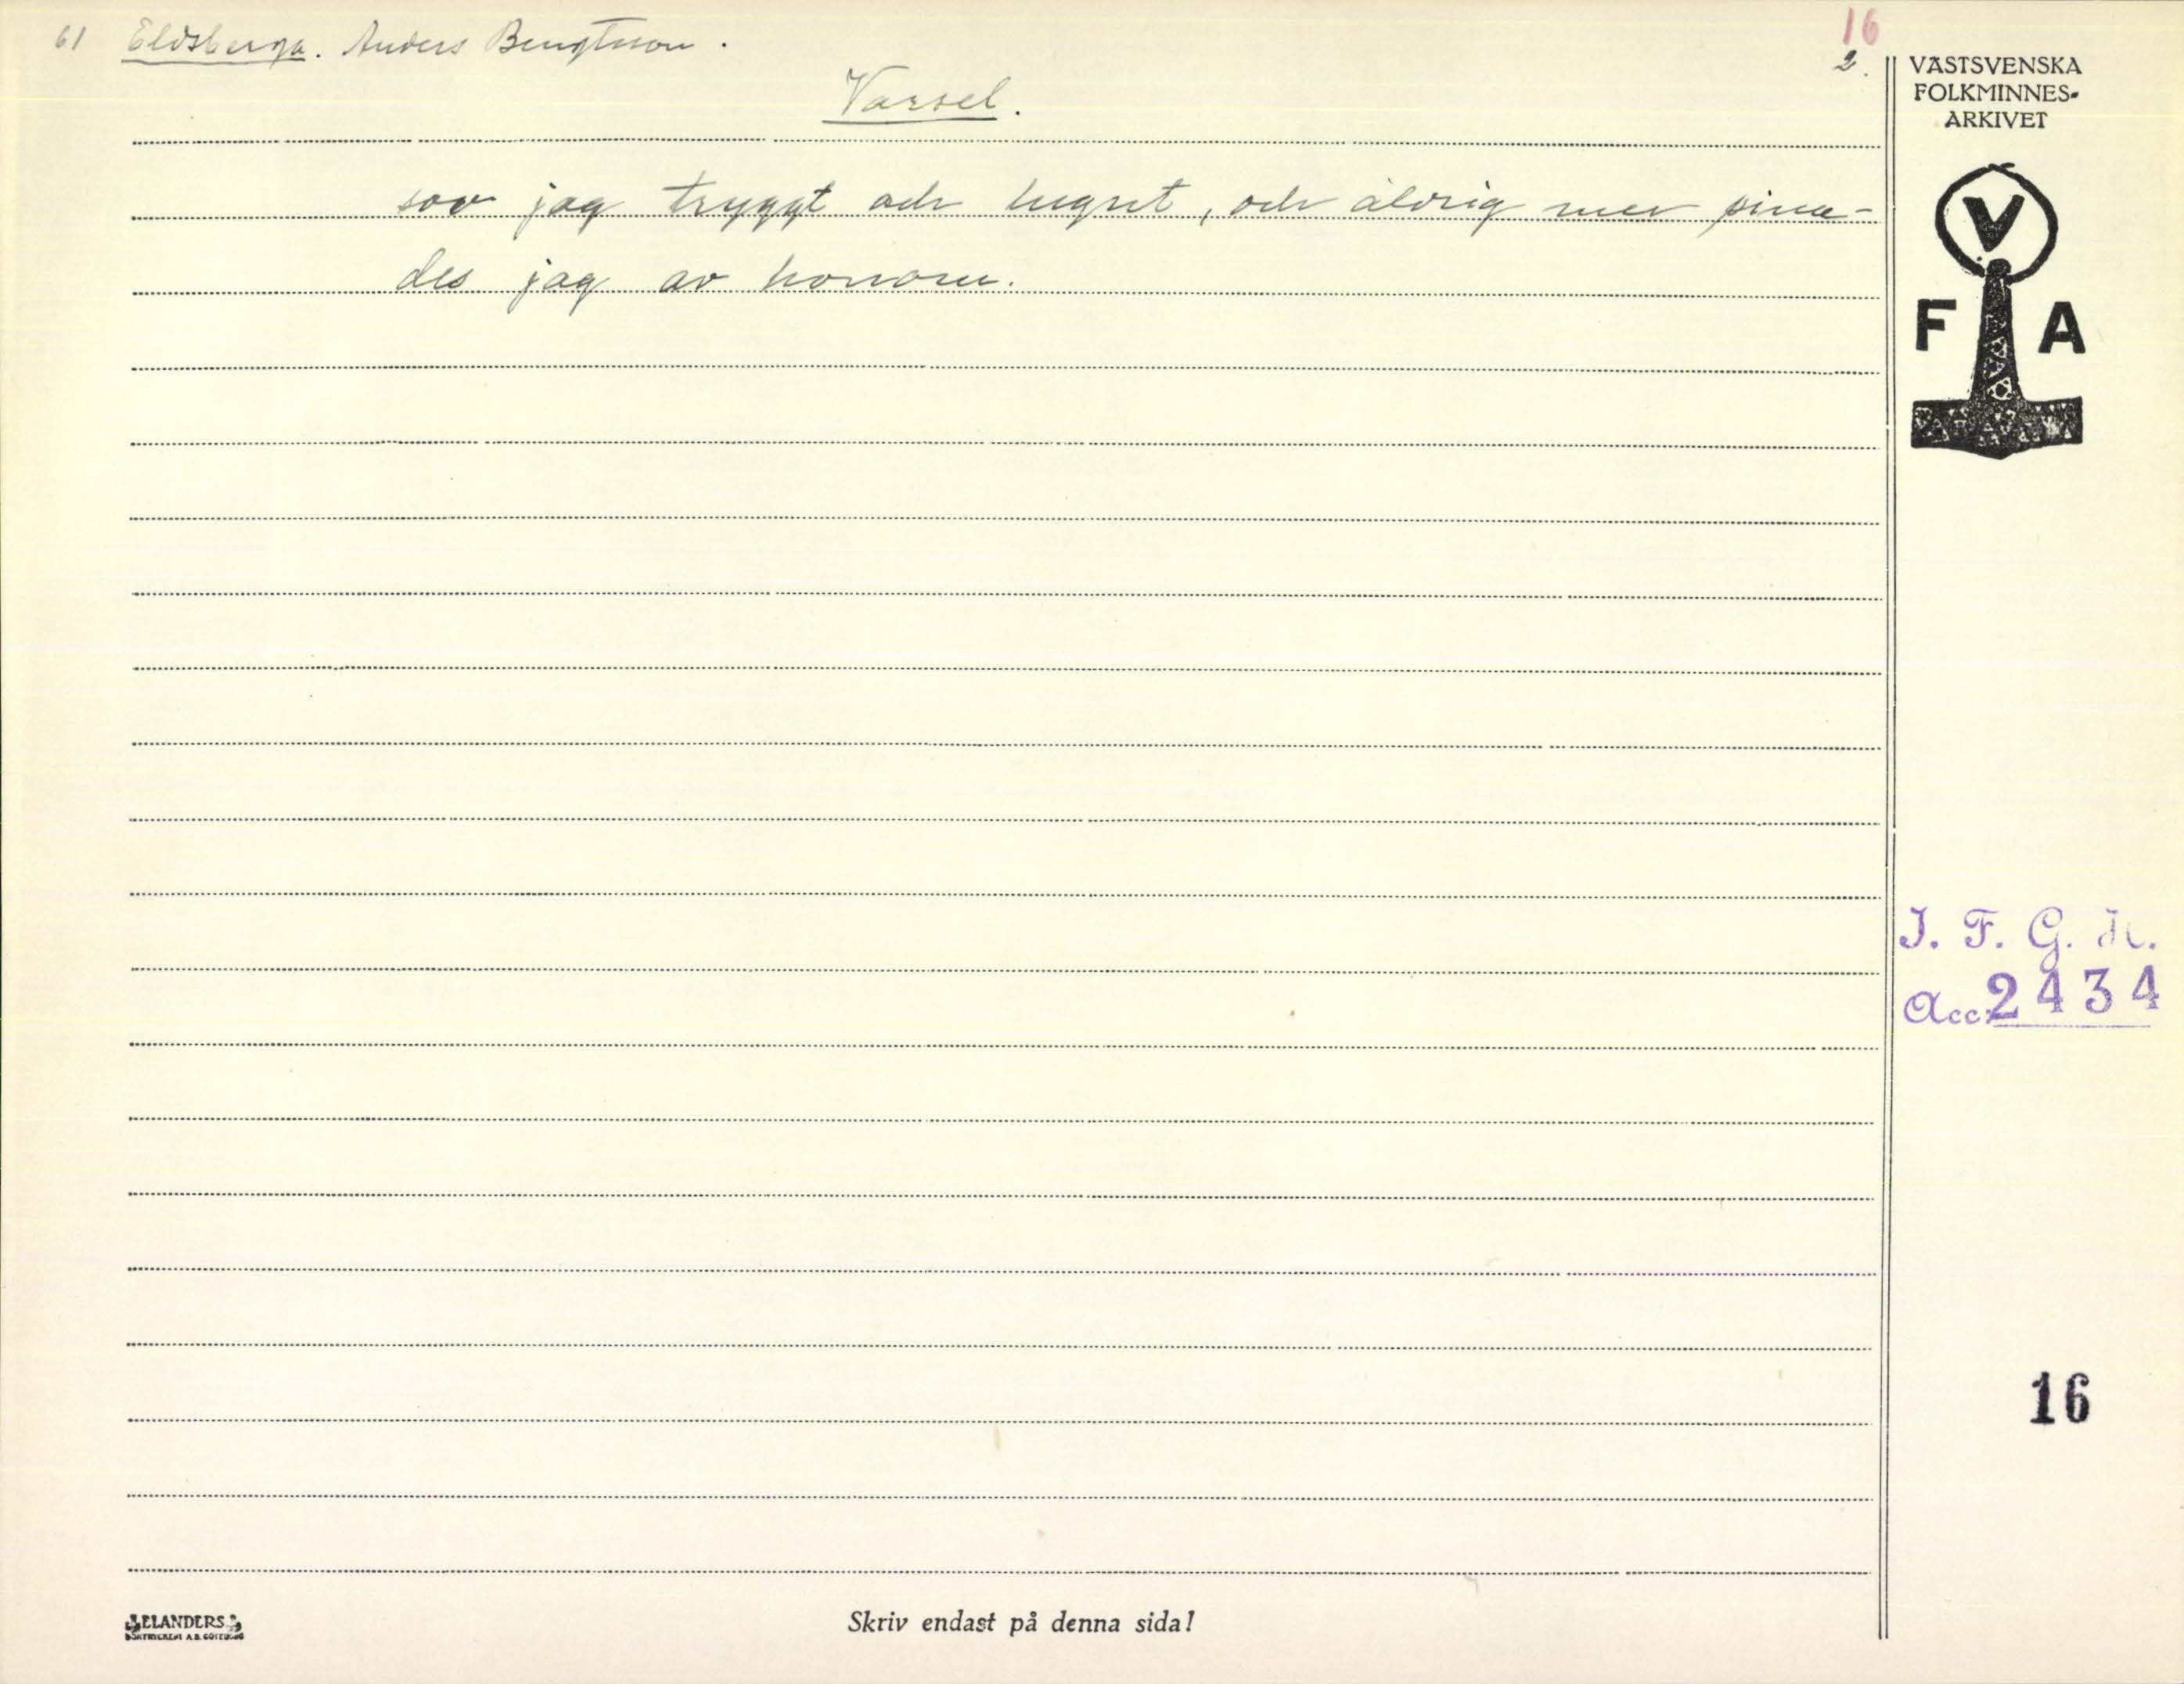 61 Eldsberga. Anders Bengtsson.
16
2.
Varsel.
sov jag tryggt och lugnt, och aldrig mer pina-
des jag av honom.
VÄSTSVENSKA
FOLKMINNES-
ARKIVET
V
F A
I. F. G. H.
Acc. 2434
16
ELANDERS
BOKTRYCKERI A.B. GÖTEBORG
Skriv endast på denna sida!